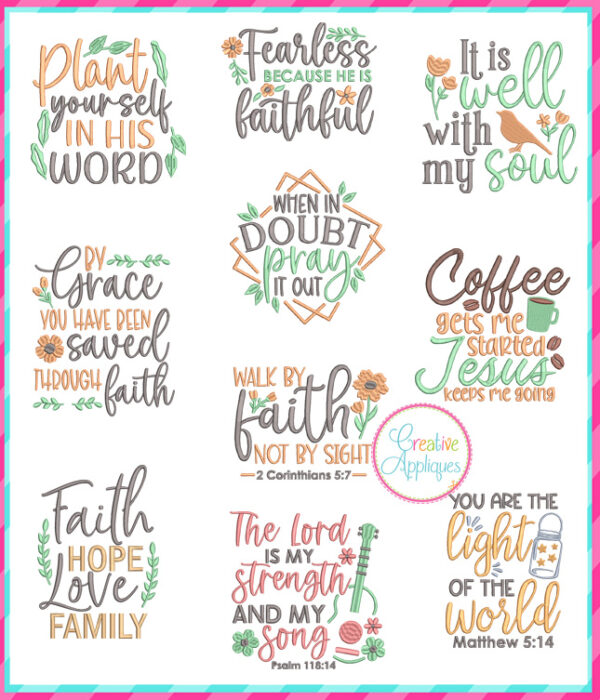 Plant
yourself
IN HIS
WORD
Fearless
BECAUSE HE IS
faithful
It is
well
with
my soul
WHEN IN
DOUBT
pray
IT OUT
BY
Grace
YOU HAVE BEEN
saved
THROUGH
faith
Coffee
gets me
started
Jesus
keeps me going
WALK BY
faith
NOT BY SIGHT
2 Corinthians 5:7
Creative
Appliques
Faith
HOPE
Love
FAMILY
The Lord
IS MY
strength
AND MY
song
Psalm 118:14
YOU ARE THE
light
OF THE
world
Matthew 5:14